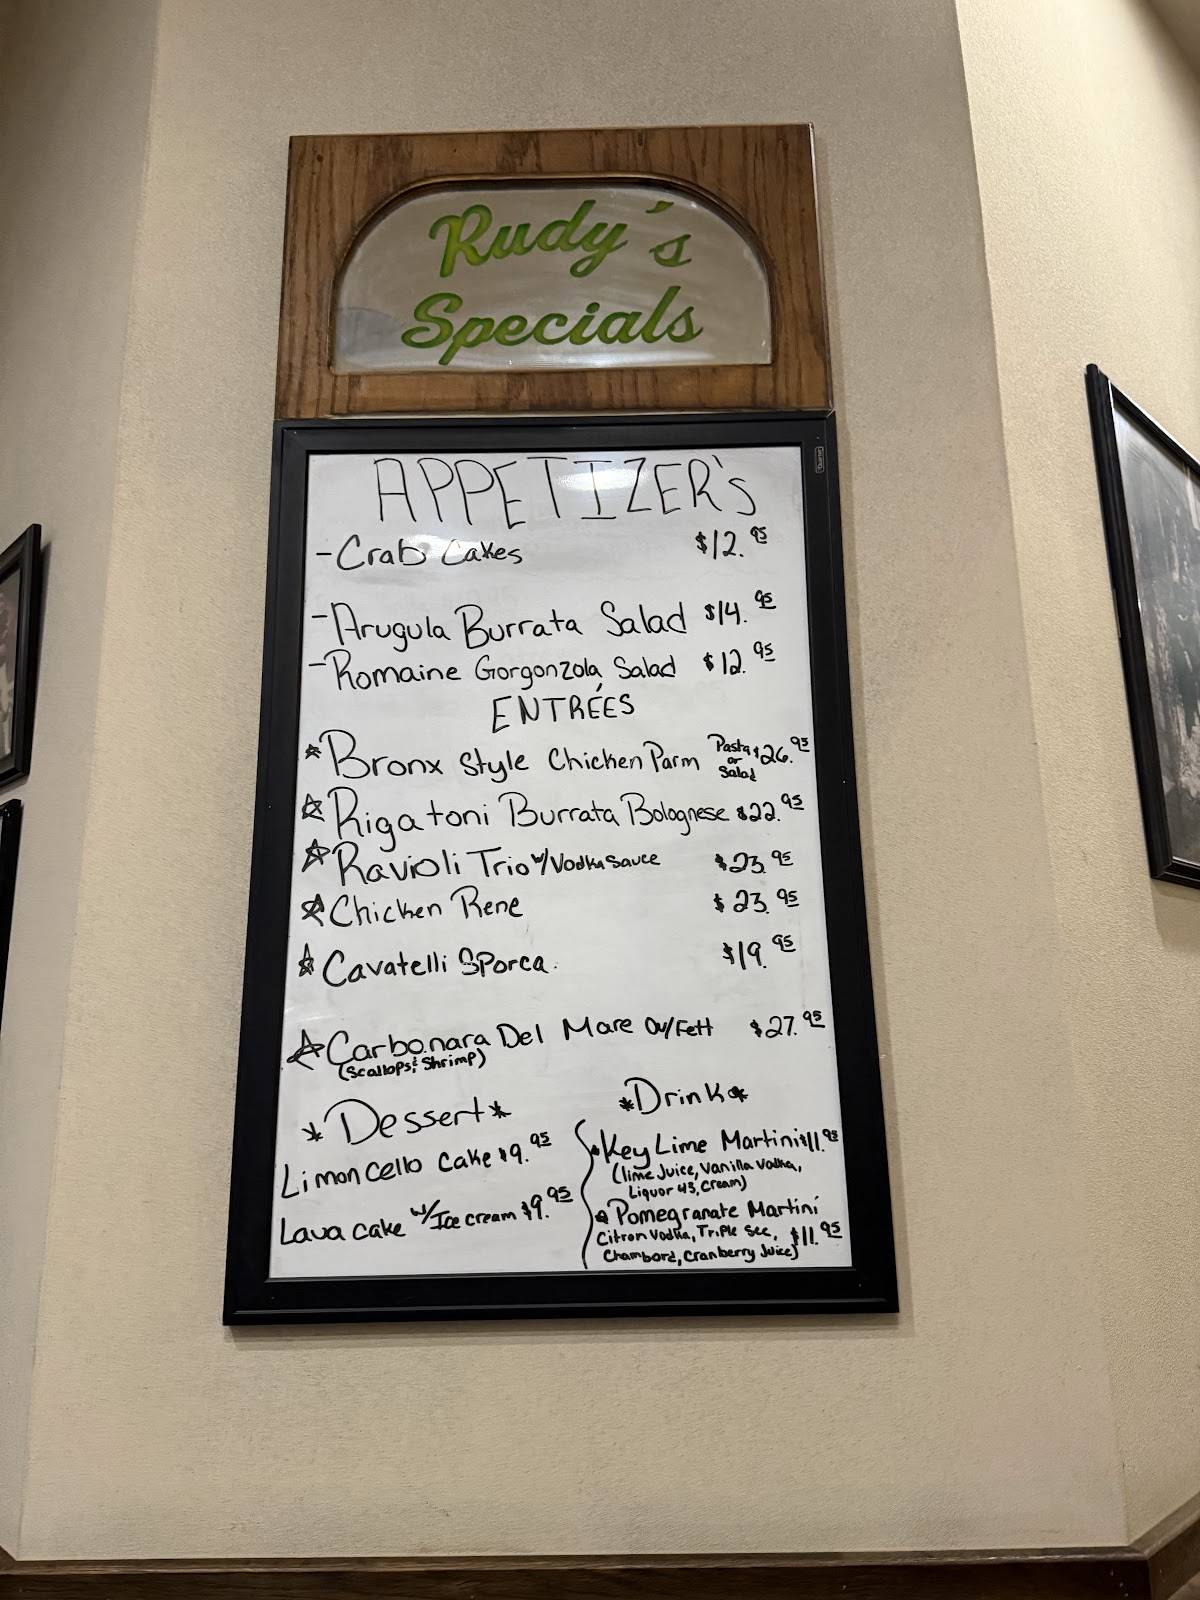 Rudy's
Specials
APPETIZER's
- Crab Cakes $12.95
- Arugula Burrata Salad $14.95
- Romaine Gorgonzola Salad $12.95
ENTRÉES
Bronx Style Chicken Parm Pasta or Salad $26.95
Rigatoni Burrata Bolognese $22.95
Ravioli Trio w/Vodka Sauce $23.95
Chicken Rene $23.95
Cavatelli Sporca. $19.95
Carbonara Del Mare w/Fett $27.95
(Scallops & Shrimp)
*Dessert*
Limoncello Cake $9.95
Lava Cake w/Ice cream $9.95
*Drink*
Key Lime Martini $11.95
(lime Juice, Vanilla Vodka,
Liquor 43, Cream)
Pomegranate Martini
Citron Vodka, Triple Sec, $11.95
Chambord, Cranberry Juice)